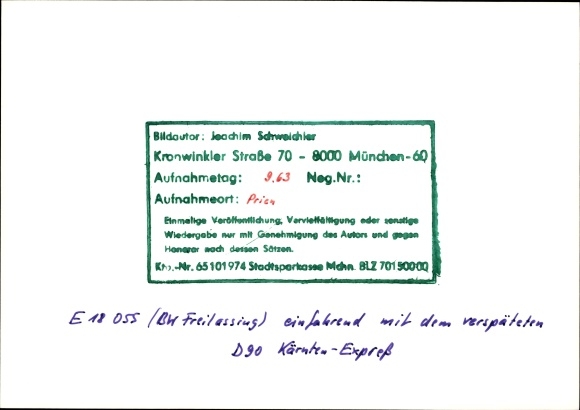 Bildautor: Joachim Schweichler
Kronwinkler Straße 70 - 8000 München-60
Aufnahmetag: 9.63 Neg.Nr.:
Aufnahmeort: Prien
Einmalige Veröffentlichung, Vervielfältigung oder sonstige
Wiedergabe nur mit Genehmigung des Autors und gegen
Honorar nach dessen Sätzen.
Kto.-Nr. 65101974 Stadtsparkasse Mchn. BLZ 70150000
E 18 055 (BW Freilassing) einfahrend mit dem verspäteten
D90 Kärnten-Expreß